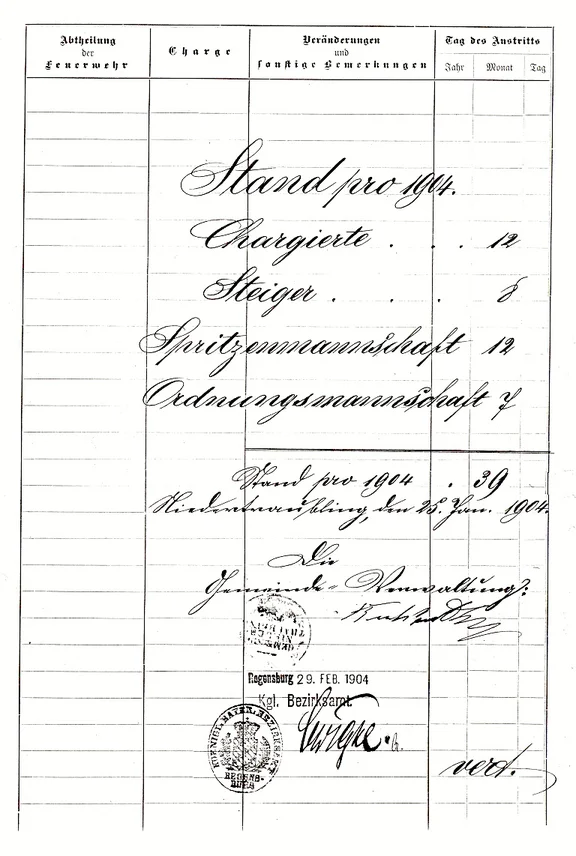 Abtheilung
der
Feuerwehr
Charge
Veränderungen
und
sonstige Bemerkungen
Tag des Austritts
Jahr Monat Tag
Stand pro 1904.
Chargierte . . . 12
Steiger . . . 8
Spritzenmannschaft 12
Ordnungsmannschaft 7
Stand pro 1904 . 39
Niedertraubling, den 25. Jan. 1904.
Die
Gemeinde-Verwaltung:
Regensburg 29. FEB. 1904
Kgl. Bezirksamt.
KOENIGL. BAYER. BEZIRKSAMT
REGENS-
BURG